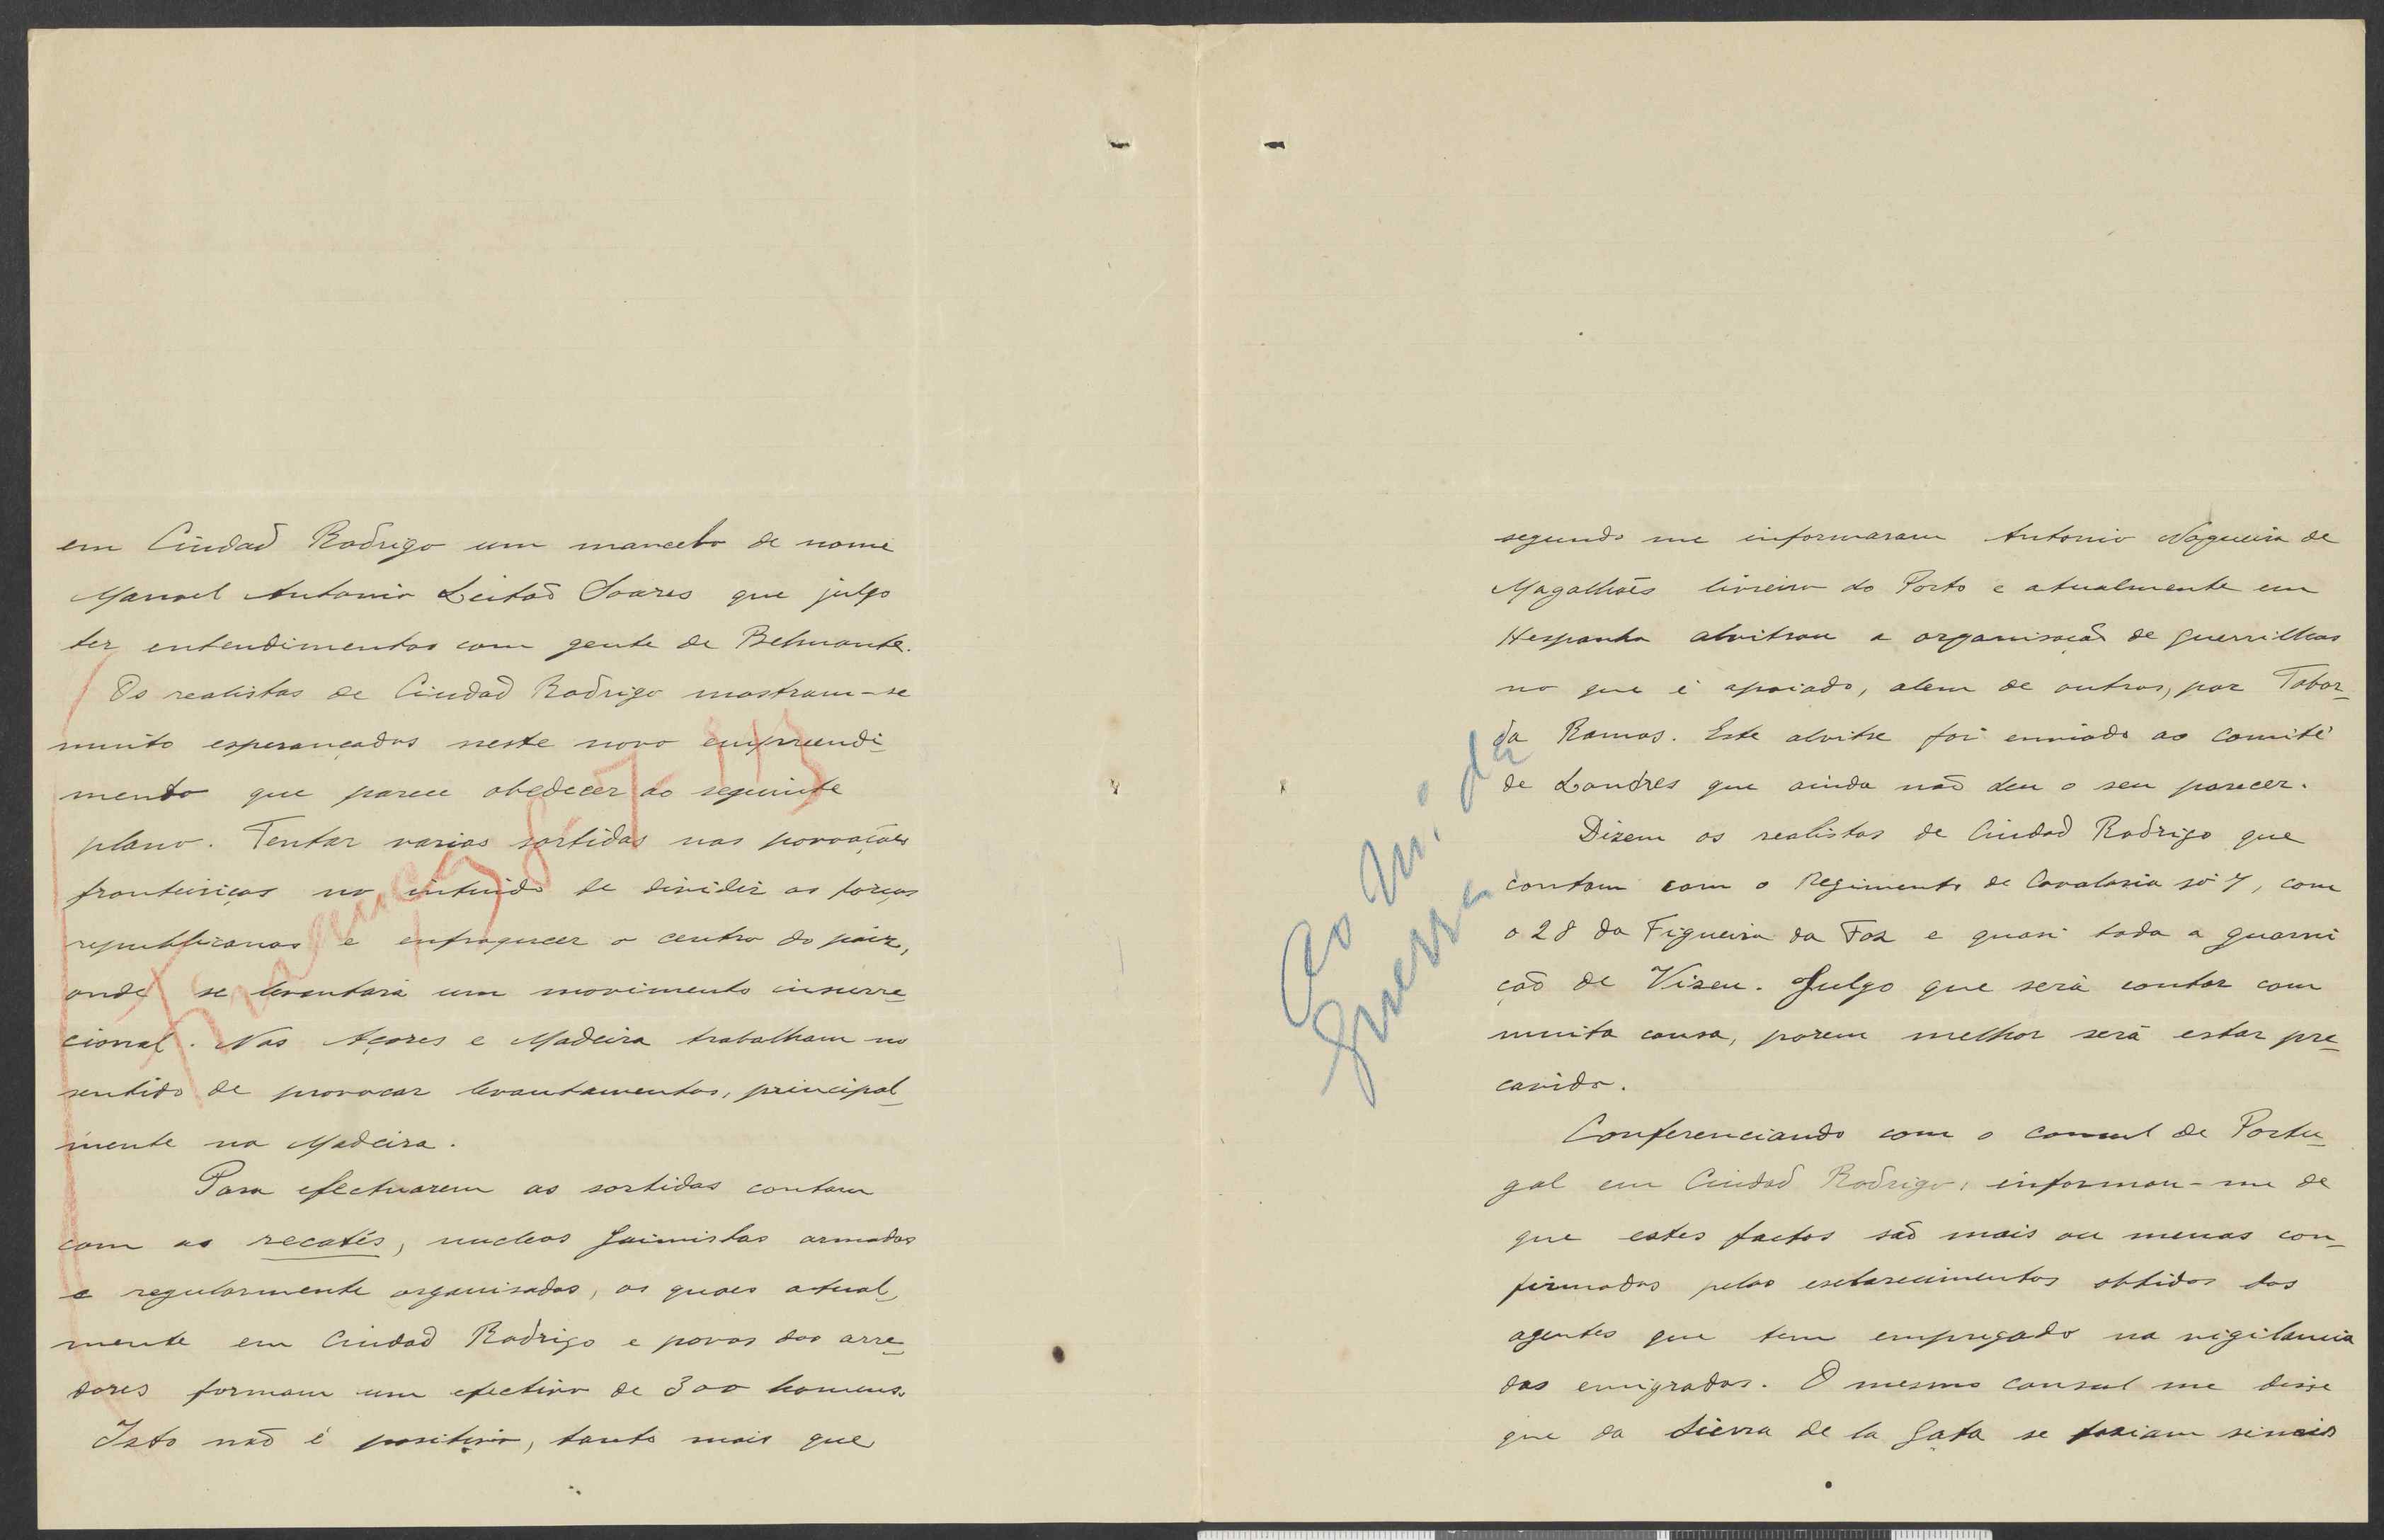 em Ciudad Rodrigo um mancebo de nome
Manoel Antonio Leitão Soares que julgo
ter entendimentos com gente de Belmonte.
Os realistas de Ciudad Rodrigo mostram-se
muito esperançados neste novo empreendi-
mento que parece obedecer ao seguinte
plano. Tentar varias sortidas nas povoações
fronteiriças no intuido de dividir as forças
republicanas e enfraquecer o centro do paiz,
onde se levantará um movimento insurre-
cional. Nos Açores e Madeira trabalham no
sentido de provocar levantamentos, principal-
mente na Madeira.
Para efectuarem as sortidas contam
com os recatés, nucleos Jaimistas armados
e regularmente organisados, os quaes atual-
mente em Ciudad Rodrigo e povos dos arre-
dores formam um efectivo de 300 homens.
Isto não é positivo, tanto mais que
segundo me informaram Antonio Nogueira de
Magalhães livreiro do Porto e atualmente em
Hespanha alvitrou a organisação de guerrilhas
no que é apoiado, alem de outros, por Tabor-
da Ramos. Este alvitre foi enviado ao comité
de Londres que ainda não deu o seu parecer.
Dizem os realistas de Ciudad Rodrigo que
contam com o Regimento de Cavalaria nº 7, com
o 28 da Figueira da Foz e quasi toda a guarni
ção de Vizeu. Julgo que será contar com
muita cousa, porem melhor será estar pre-
cavido.
Conferenciando com o consul de Portu-
gal em Ciudad Rodrigo, informou-me de
que estes factos são mais ou menos con-
firmados pelos esclarecimentos obtidos dos
agentes que tem empregado na vigilancia
dos emigrados. O mesmo consul me disse
que da Sierra de la Gata se faziam sinais
Ao M. da
Guerra